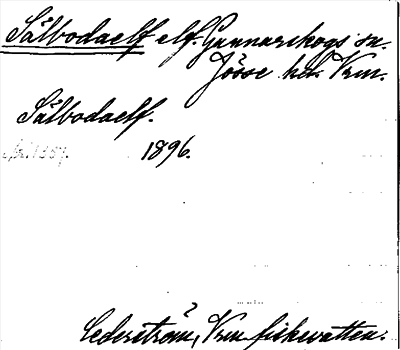 Sälbodaelf elf. Gunnarskogs sn.
Jösse hd. Vrm.
Sälbodaelf.
1896.
Cederström, Vrm fiskevatten.